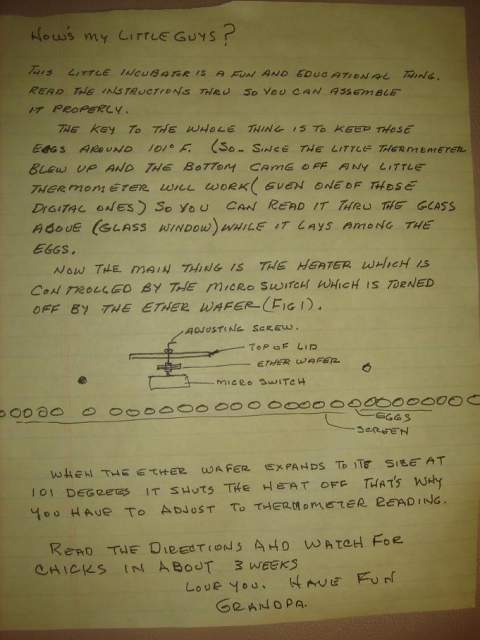 HOW'S MY LITTLE GUYS?
THIS LITTLE INCUBATOR IS A FUN AND EDUCATIONAL THING.
READ THE INSTRUCTIONS THRU SO YOU CAN ASSEMBLE
IT PROPERLY.
THE KEY TO THE WHOLE THING IS TO KEEP THOSE
EGGS AROUND 101° F. (SO- SINCE THE LITTLE THERMOMETER
BLEW UP AND THE BOTTOM CAME OFF ANY LITTLE
THERMOMETER WILL WORK (EVEN ONE OF THOSE
DIGITAL ONES) SO YOU CAN READ IT THRU THE GLASS
ABOVE (GLASS WINDOW) WHILE IT LAYS AMONG THE
EGGS.
NOW THE MAIN THING IS THE HEATER WHICH IS
CONTROLLED BY THE MICRO SWITCH WHICH IS TURNED
OFF BY THE ETHER WAFER (FIG 1).
ADJUSTING SCREW.
TOP OF LID
ETHER WAFER
MICRO SWITCH
EGGS
SCREEN
WHEN THE ETHER WAFER EXPANDS TO ITS SIZE AT
101 DEGREES IT SHUTS THE HEAT OFF THAT'S WHY
YOU HAVE TO ADJUST TO THERMOMETER READING.
READ THE DIRECTIONS AND WATCH FOR
CHICKS IN ABOUT 3 WEEKS
LOVE YOU. HAVE FUN
GRANDPA.